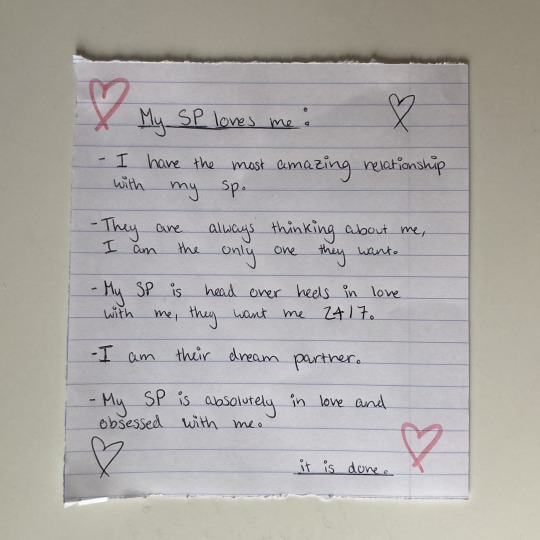 My SP loves me:
- I have the most amazing relationship
with my sp.
- They are always thinking about me,
I am the only one they want.
- My SP is head over heels in love
with me, they want me 24/7.
- I am their dream partner.
- My SP is absolutely in love and
obsessed with me.
it is done.